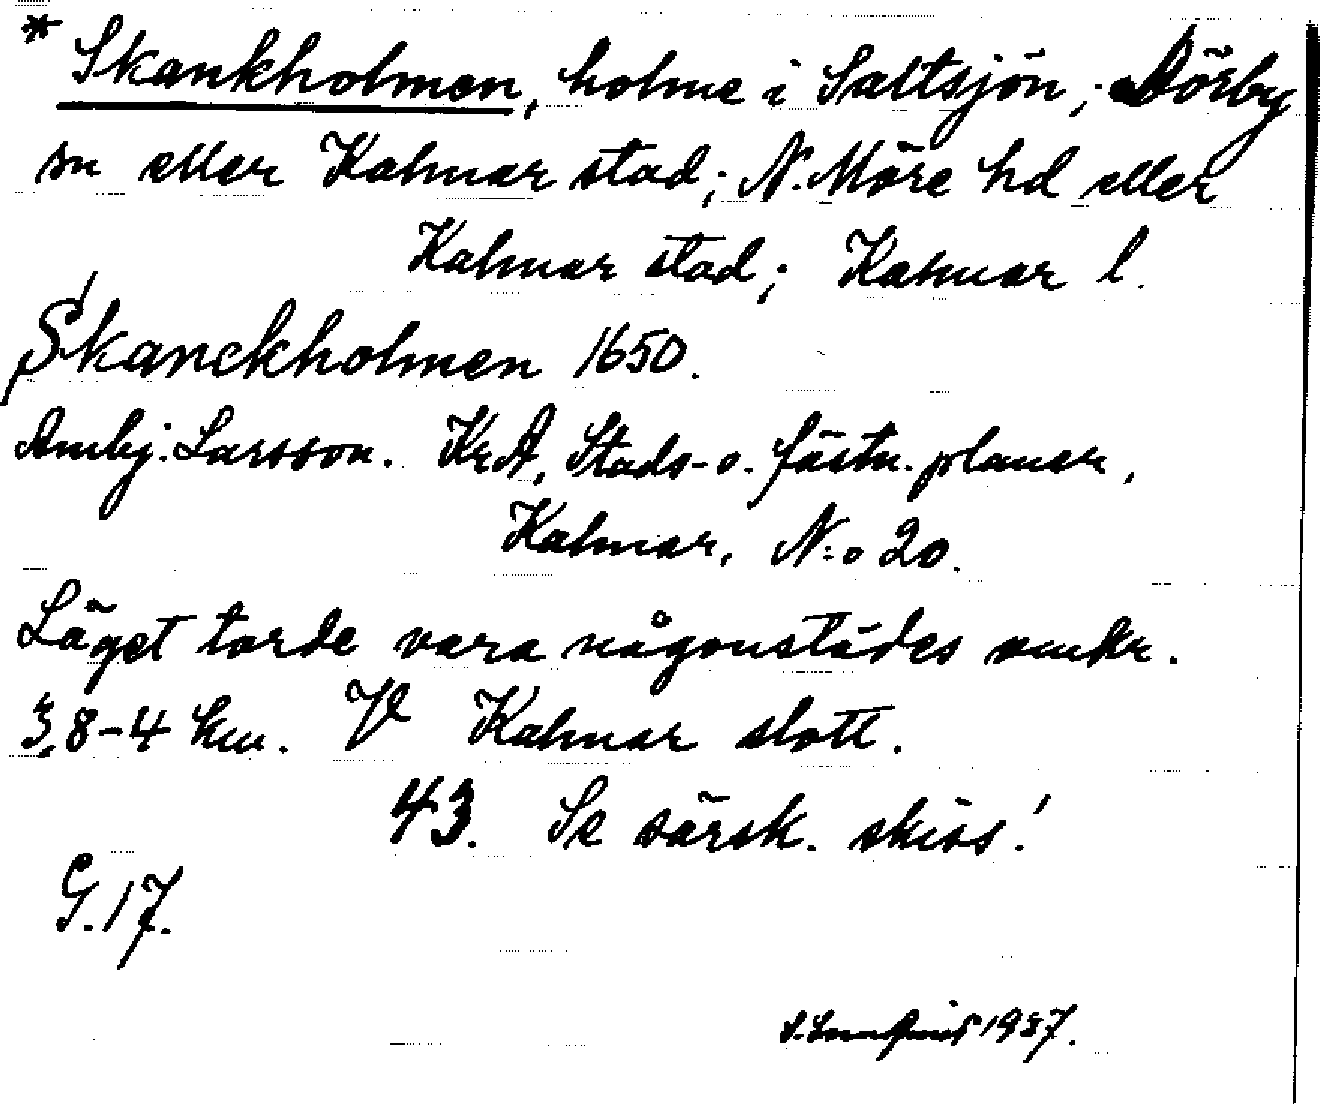 * Skankholmen, holme i Saltsjön; Dörby
sn eller Kalmar stad; N. Möre hd eller
Kalmar stad; Kalmar l.
Skanckholmen 1650.
Ambj. Larsson. KrA, Stads- o. fästn. planer,
Kalmar, N:o 20.
Läget torde vara någonstädes omkr.
3,8-4 km. V Kalmar slott.
43. Se särsk. skiss!
G. 17.
1937.